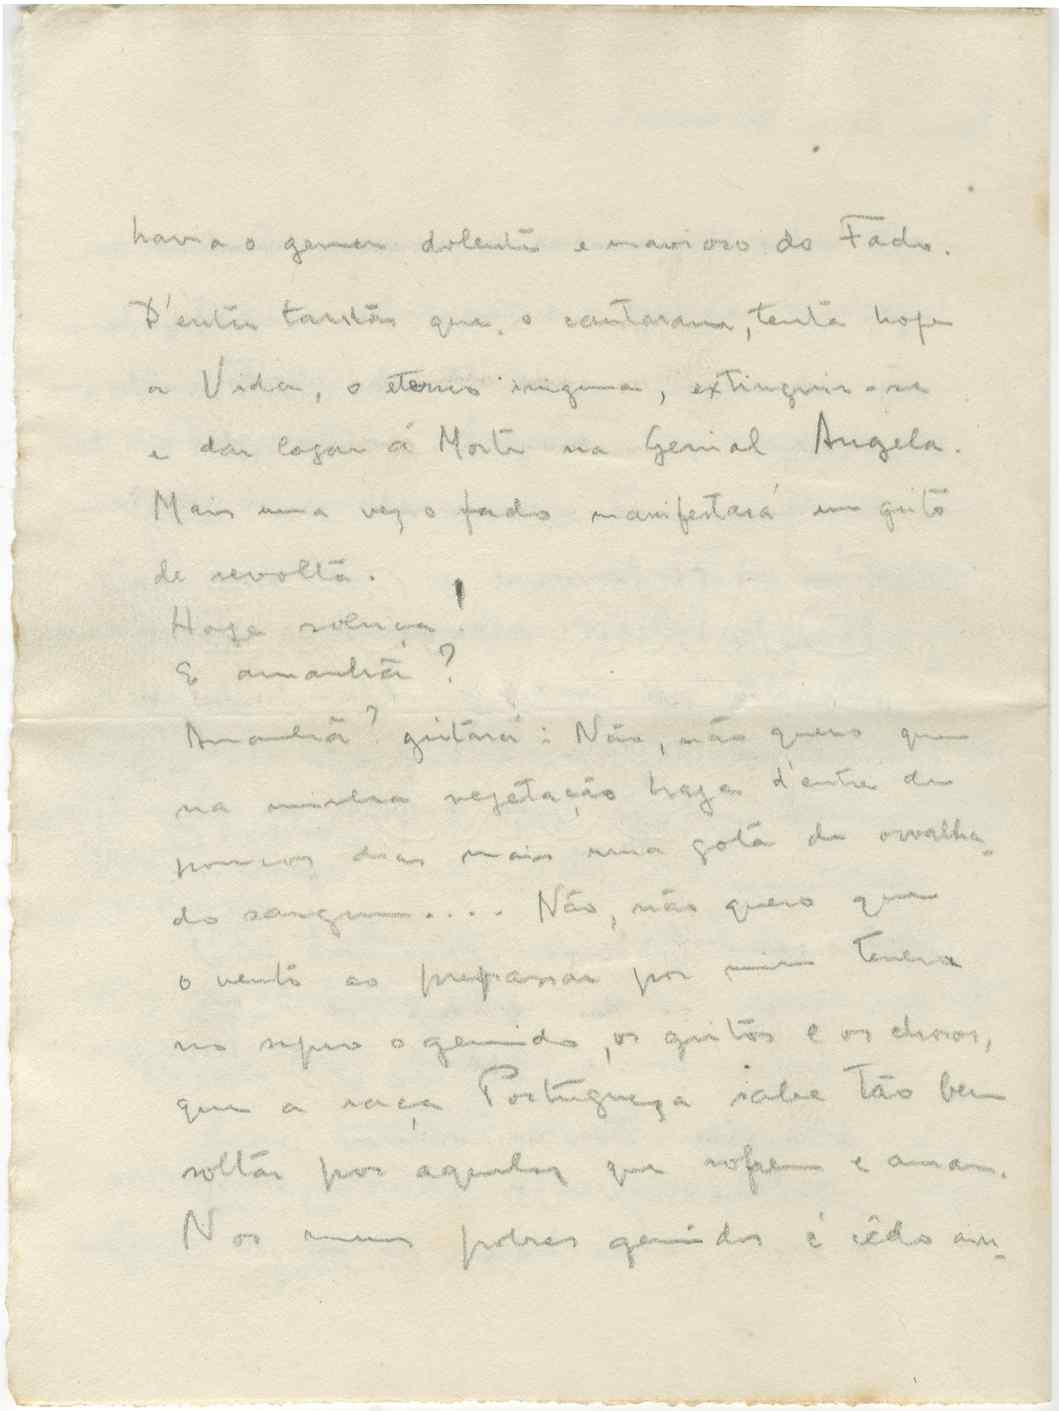 havia o gemer dolente e mavioso do Fado.
D'entre tantas que o cantaram, tenta hoje
a Vida, o eterno inigma, extinguir-se
e dar logar á Morte na Genial Angela.
Mais uma vez o fado manifestará um grito
de revolta.
Hoje soluça!
E amanhã?
Amanhã? gritará: Não, não quero que
na minha vegetação haja d'entre de
poucos dias mais uma gota de orvalha-
do sangue.... Não, não quero que
o vento ao perpassar por mim
no sopro o gemido, os gritos e os choros,
que a raça Portugueza sabe tão bem
soltar por aqueles que sofrem e amam.
Nos meus pobres gemidos é cêdo ain-